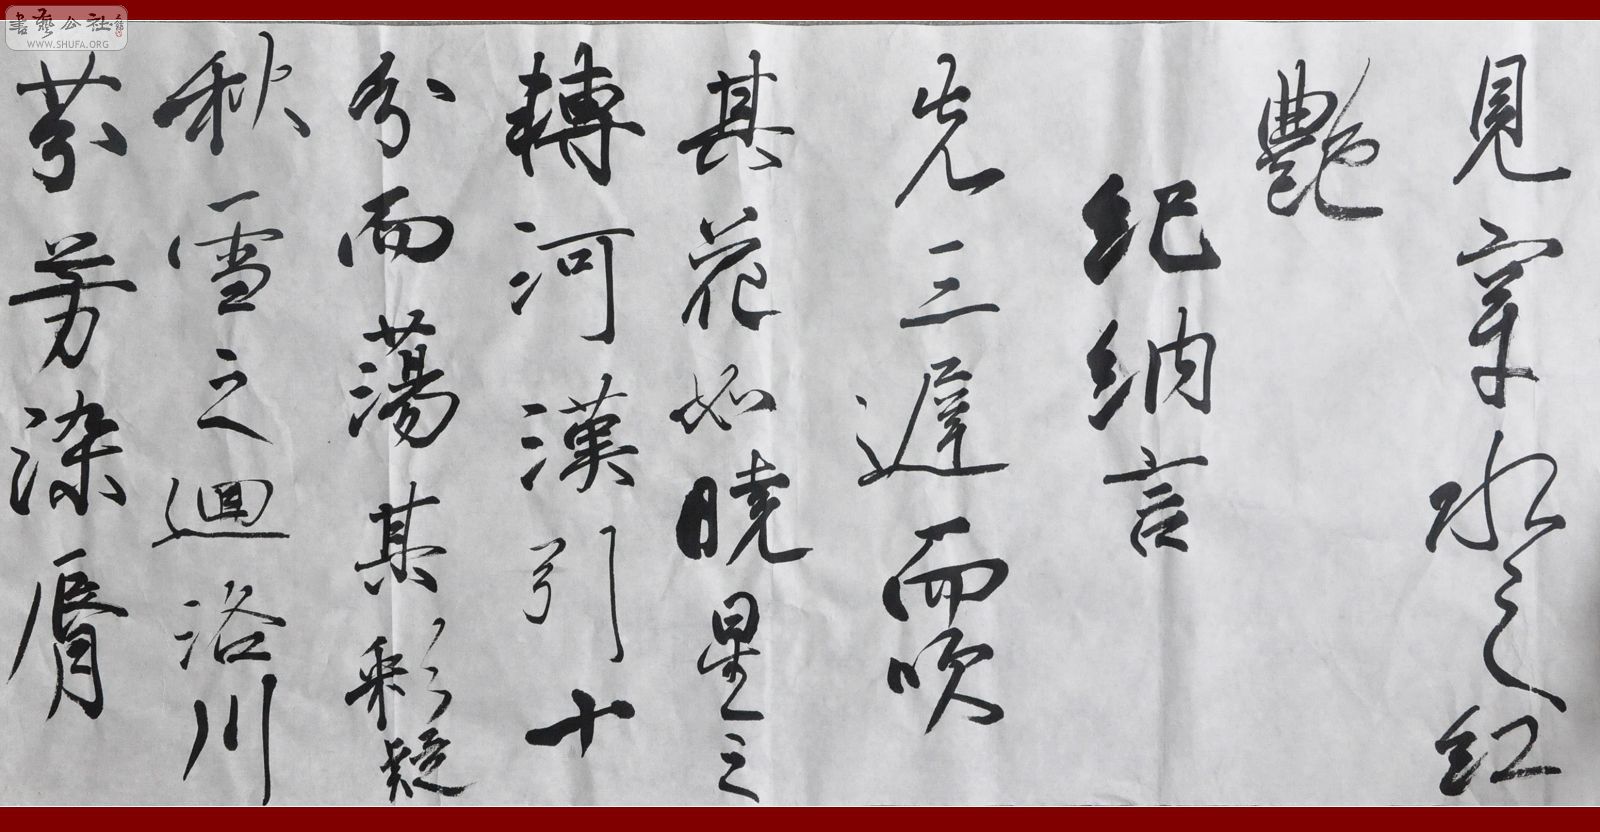 見穿水之紅
艷
紀納言
先三遲而吹
其花如曉星之
轉河漢引十
分而蕩其彩疑
秋雪之迴洛川
芬芳染脣
書藝公社
WWW.SHUFA.ORG